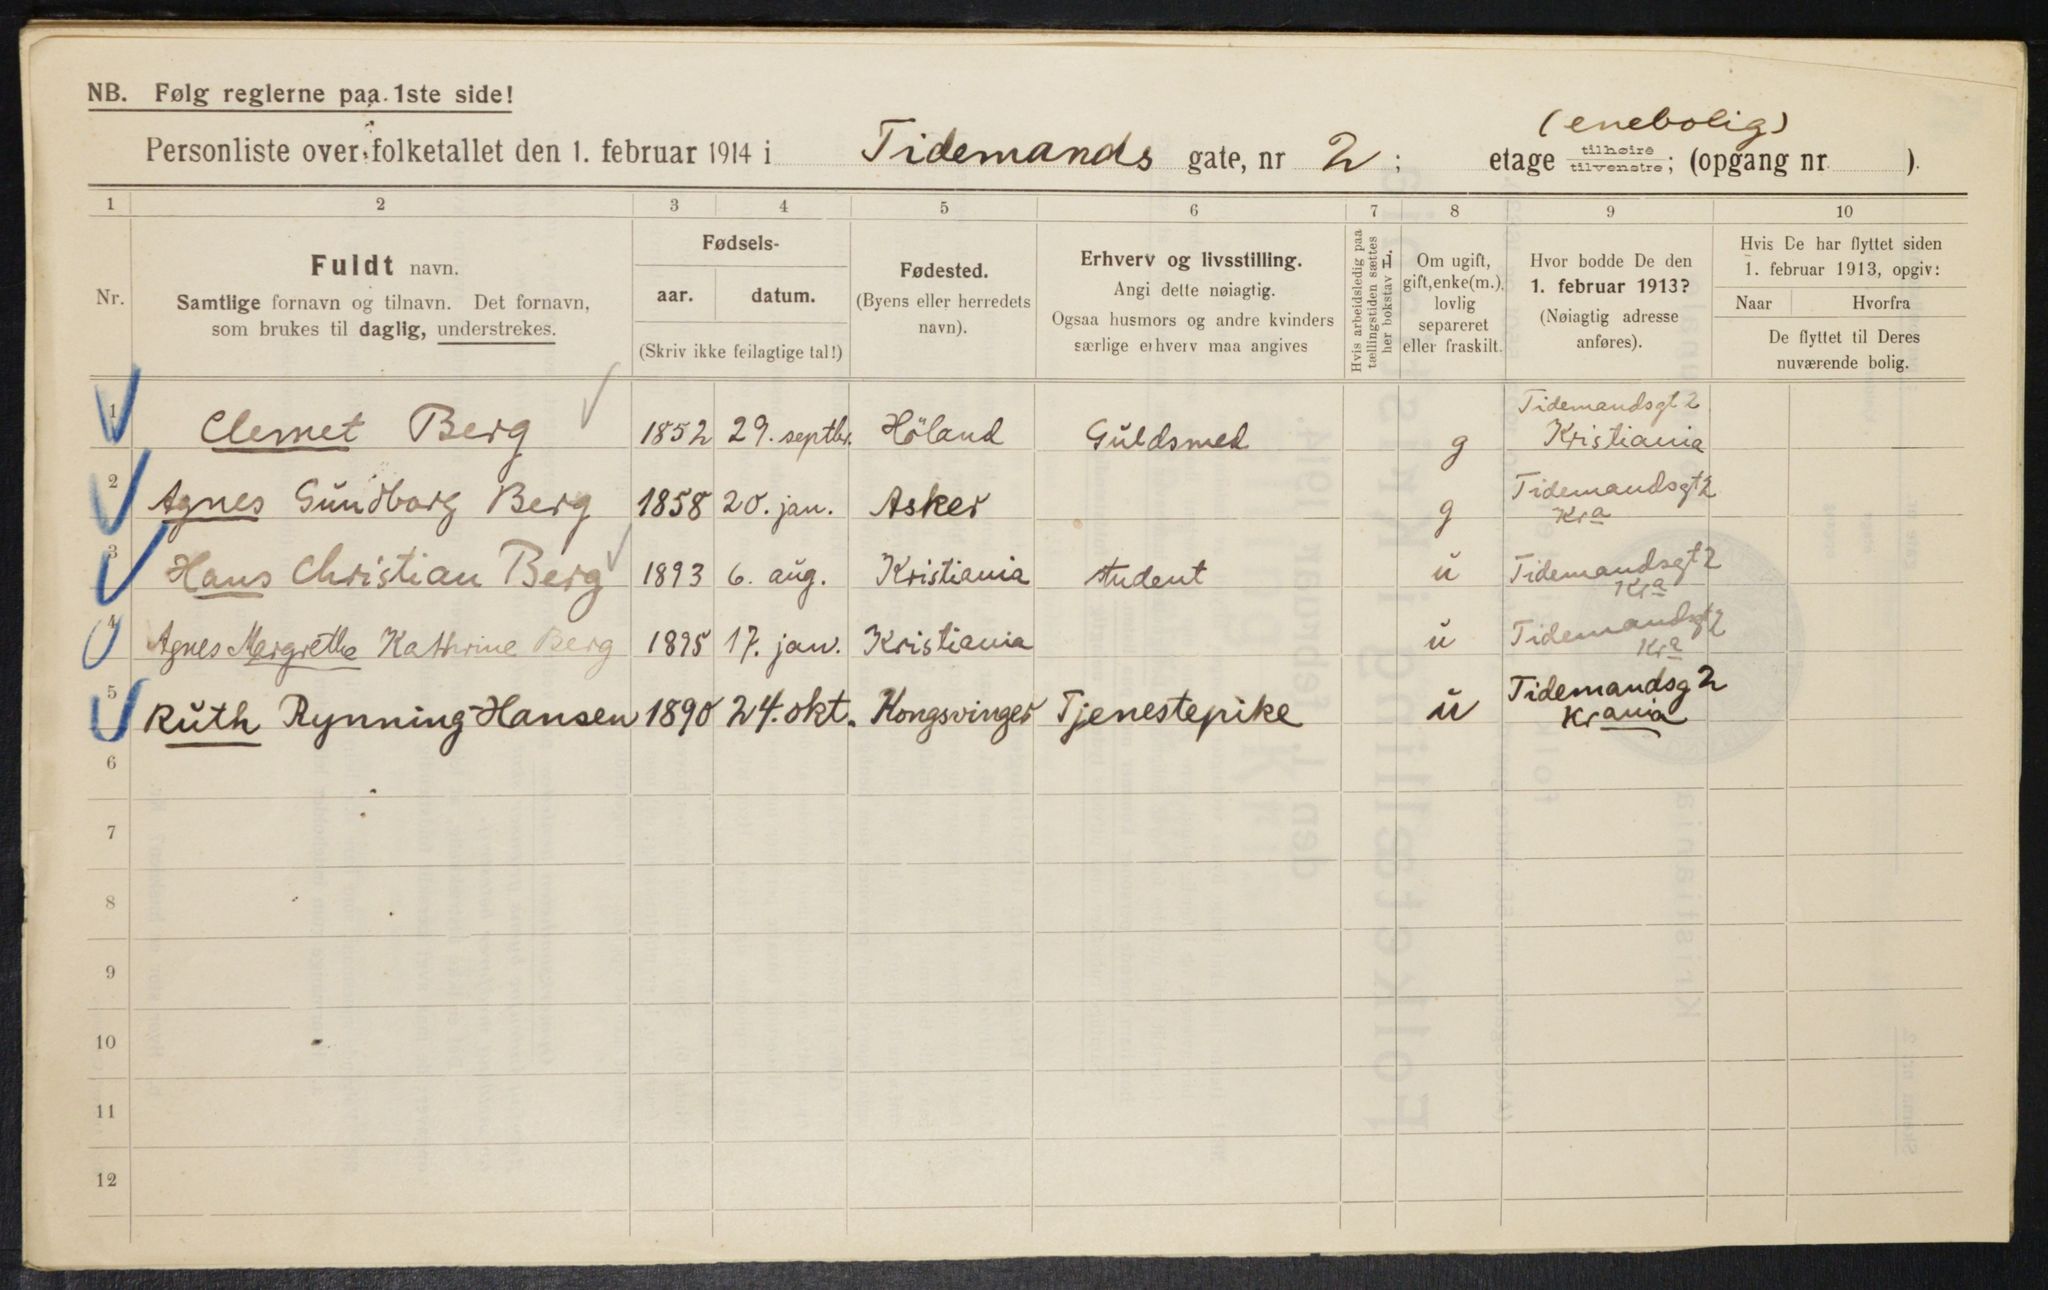 NB. Følg reglerne paa 1ste side!
(enebolig)
Personliste over folketallet den 1. februar 1914 i Tidemands gate, nr 2; etage tilhøire/tilvenstre; (opgang nr ).
1 2 3 4 5 6 7 8 9 10
Nr.
Fuldt navn.
Samtlige fornavn og tilnavn. Det fornavn,
som brukes til daglig, understrekes.
Fødsels-
aar. datum.
(Skriv ikke feilagtige tal!)
Fødested.
(Byens eller herredets
navn).
Erhverv og livsstilling.
Angi dette nøiagtig.
Ogsaa husmors og andre kvinders
særlige erhverv maa angives
Hvis arbeidsledig paa
tællingstiden sættes
her bokstav
Om ugift,
gift, enke(m.),
lovlig
separeret
eller fraskilt.
Hvor bodde De den
1. februar 1913?
(Nøiagtig adresse
anføres).
Hvis De har flyttet siden
1. februar 1913, opgiv:
Naar Hvorfra
De flyttet til Deres
nuværende bolig.
1 Clemet Berg 1852 29. septbr. Höland Guldsmed g Tidemandsgt 2
Kristiania
2 Agnes Gundborg Berg 1858 20. jan. Asker g Tidemandsgt 2
Kra
3 Hans Christian Berg 1893 6. aug. Kristiania student u Tidemandsgt 2
Kra
4 Agnes Margrethe Kathrine Berg 1895 17. jan. Kristiania u Tidemandsgt 2
Kra
5 Ruth Rynning-Hansen 1890 24. okt. Kongsvinger Tjenestepike u Tidemandsg 2
Krania
6
7
8
9
10
11
12